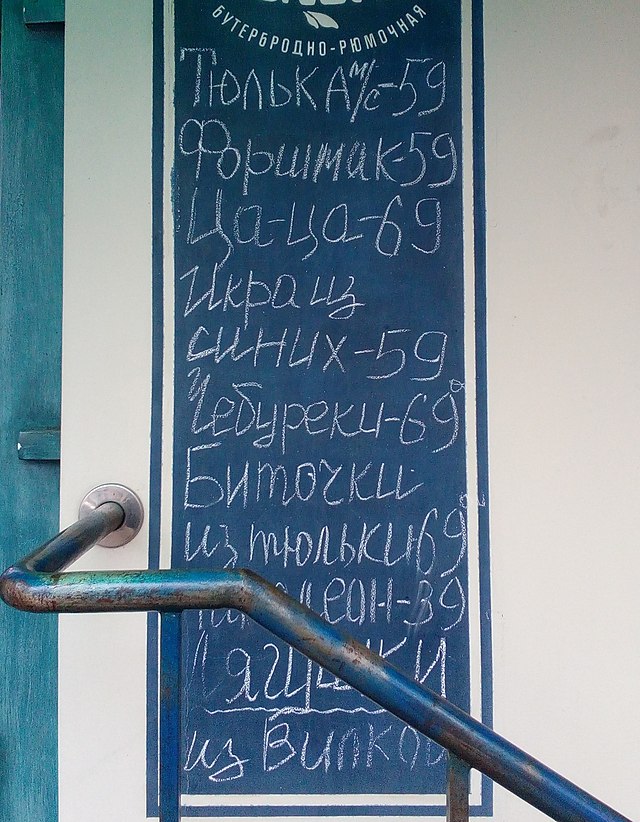 БУТЕРБРОДНО-РЮМОЧНАЯ
Тюлька м/с-59
Форшмак-59
Ца-ца-69
Икра из
синих-59
Чебуреки-69
Биточки
из тюльки-69
Лягушки
из Вилково